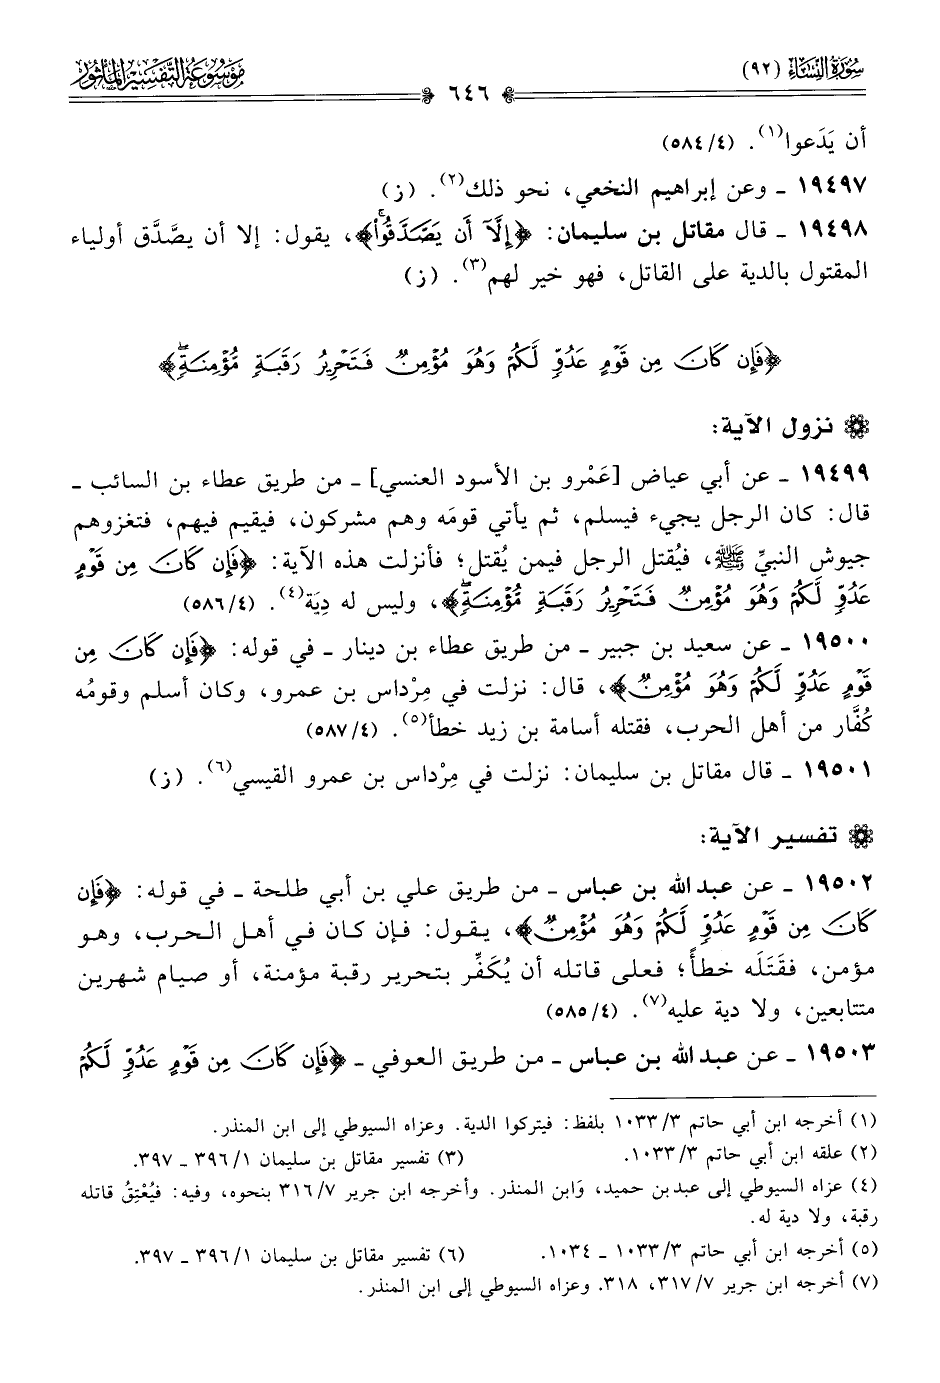 سُورَةُ النِّسَاءِ (٩٢)
٦٤٦
مَوْسُوعَة التَّفْسِيْر المَأْثُور
أن يَدَعوا(١). (٥٨٤/٤)
١٩٤٩٧ ـ وعن إبراهيم النخعي، نحو ذلك(٢). (ز)
١٩٤٩٨ ـ قال مقاتل بن سليمان: ﴿إِلَّآ أَن يَصَّدَّقُواْۚ﴾، يقول: إلا أن يصَّدَّق أولياء
المقتول بالدية على القاتل، فهو خير لهم(٣). (ز)
﴿فَإِن كَانَ مِن قَوْمٍ عَدُوٍّ لَّكُمْ وَهُوَ مُؤْمِنٌ فَتَحْرِيرُ رَقَبَةٍ مُّؤْمِنَةٍۖ﴾
نزول الآية:
١٩٤٩٩ ـ عن أبي عياض [عَمْرو بن الأسود العنسي] ـ من طريق عطاء بن السائب ـ
قال: كان الرجل يجيء فيسلم، ثم يأتي قومَه وهم مشركون، فيقيم فيهم، فتغزوهم
جيوش النبيِّ ﷺ، فيُقتل الرجل فيمن يُقتل؛ فأنزلت هذه الآية: ﴿فَإِن كَانَ مِن قَوْمٍ
عَدُوٍّ لَّكُمْ وَهُوَ مُؤْمِنٌ فَتَحْرِيرُ رَقَبَةٍ مُّؤْمِنَةٍۖ﴾، وليس له دِيَة(٤). (٥٨٦/٤)
١٩٥٠٠ ـ عن سعيد بن جبير ـ من طريق عطاء بن دينار ـ في قوله: ﴿فَإِن كَانَ مِن
قَوْمٍ عَدُوٍّ لَّكُمْ وَهُوَ مُؤْمِنٌ﴾، قال: نزلت في مِرْداس بن عمرو، وكان أسلم وقومُه
كُفَّار من أهل الحرب، فقتله أسامة بن زيد خطأ(٥). (٥٨٧/٤)
١٩٥٠١ ـ قال مقاتل بن سليمان: نزلت في مِرْداس بن عمرو القيسي(٦). (ز)
تفسير الآية:
١٩٥٠٢ ـ عن عبد الله بن عباس ـ من طريق علي بن أبي طلحة ـ في قوله: ﴿فَإِن
كَانَ مِن قَوْمٍ عَدُوٍّ لَّكُمْ وَهُوَ مُؤْمِنٌ﴾، يقول: فإن كان في أهل الحرب، وهو
مؤمن، فقَتَلَه خطأً؛ فعلى قاتله أن يُكَفِّر بتحرير رقبة مؤمنة، أو صيام شهرين
متتابعين، ولا دية عليه(٧). (٥٨٥/٤)
١٩٥٠٣ ـ عن عبد الله بن عباس ـ من طريق العوفي ـ ﴿فَإِن كَانَ مِن قَوْمٍ عَدُوٍّ لَّكُمْ
(١) أخرجه ابن أبي حاتم ١٠٣٣/٣ بلفظ: فيتركوا الدية. وعزاه السيوطي إلى ابن المنذر.
(٢) علقه ابن أبي حاتم ١٠٣٣/٣. (٣) تفسير مقاتل بن سليمان ٣٩٦/١ ـ ٣٩٧.
(٤) عزاه السيوطي إلى عبد بن حميد، وَابن المنذر. وأخرجه ابن جرير ٣١٦/٧ بنحوه، وفيه: فيُعْتِقُ قاتله
رقبة، ولا دية له.
(٥) أخرجه ابن أبي حاتم ١٠٣٣/٣ ـ ١٠٣٤. (٦) تفسير مقاتل بن سليمان ٣٩٦/١ ـ ٣٩٧.
(٧) أخرجه ابن جرير ٣١٧/٧، ٣١٨. وعزاه السيوطي إلى ابن المنذر.